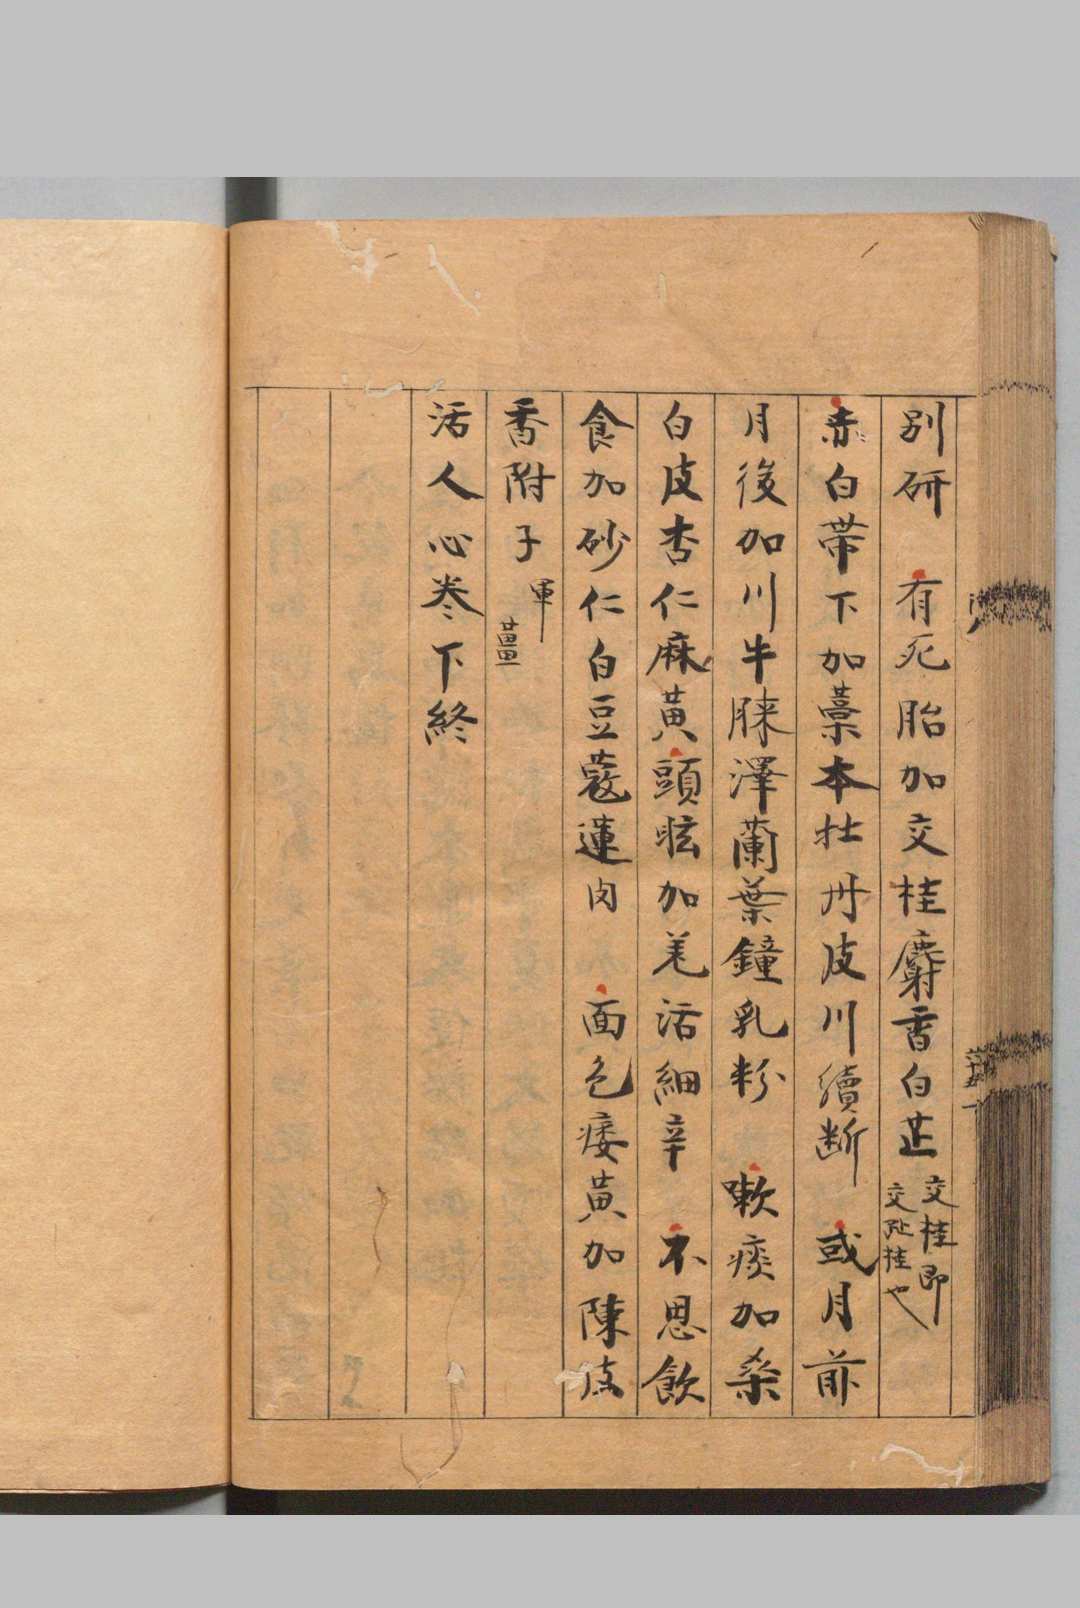 別研　有死胎加交桂麝香白芷交桂即交趾桂也
赤白帶下加藁本牡丹皮川續斷　或月前
月後加川牛膝澤蘭葉鐘乳粉　嗽痰加桑
白皮杏仁麻黃頭眩加羌活細辛　不思飲
食加砂仁白豆蔻蓮肉　面色痿黃加陳皮
香附子軍薑
活人心卷下終
六十五